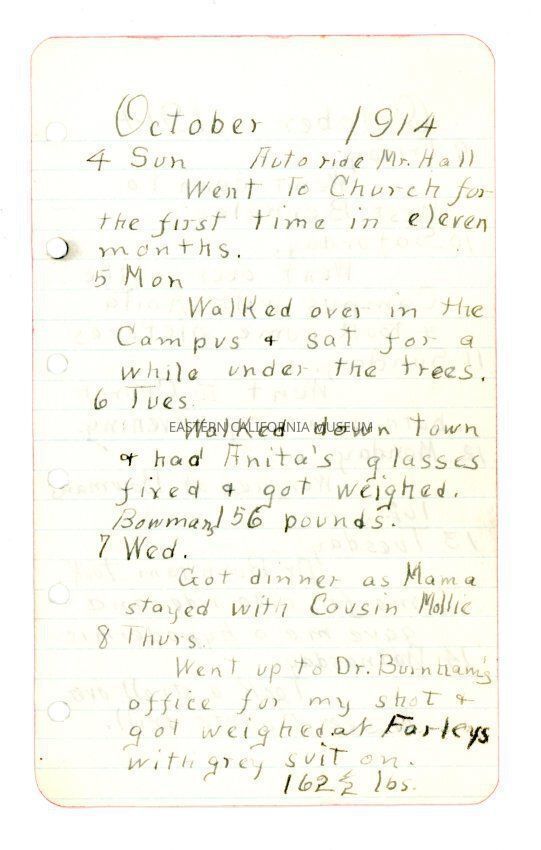 October 1914
4 Sun Auto ride Mr. Hall
Went To Church for
the first time in eleven
months.
5 Mon
Walked over in the
Campus & sat for a
while under the trees.
6 Tues.
EASTERN CALIFORNIA MUSEUM
Walked down town
& had Anita's glasses
fixed & got weighed.
Bowmans 156 pounds.
7 Wed.
Got dinner as Mama
stayed with Cousin Mollie
8 Thurs.
Went up to Dr. Burnham's
office for my shot &
got weighed at Farleys
with grey suit on.
162 1/2 lbs.